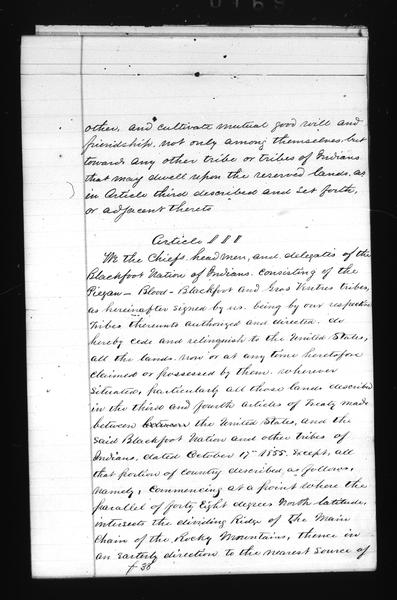 other, and cultivate mutual good will and
friendship, not only among themselves, but
towards any other tribe or tribes of Indians
that may dwell upon the reserved lands, as
in Article third described and set forth,
or adjacent thereto
Article III
We the Chiefs, head men, and delegates of the
Blackfoot Nation of Indians. consisting of the
Piegan - Blood - Blackfoot and Gros Ventres tribes,
as hereinafter signed by us. being by our respective
Tribes thereunto authorized and directed. do
hereby cede and relinquish to the United States,
all the lands. now or at any time heretofore
claimed or possessed by them. wherever
situated, particularly all those lands described
in the third and fourth articles of Treaty made
between between the United States, and the
said Blackfoot Nation and other tribes of
Indians, dated October 17th 1855. Except, all
that portion of country described, as follows,
namely; Commencing at a point where the
parallel of forty Eight degrees North latitude,
intersects the dividing Ridge of the Main
Chain of the Rocky Mountains, thence in
an Easterly direction to the nearest source of